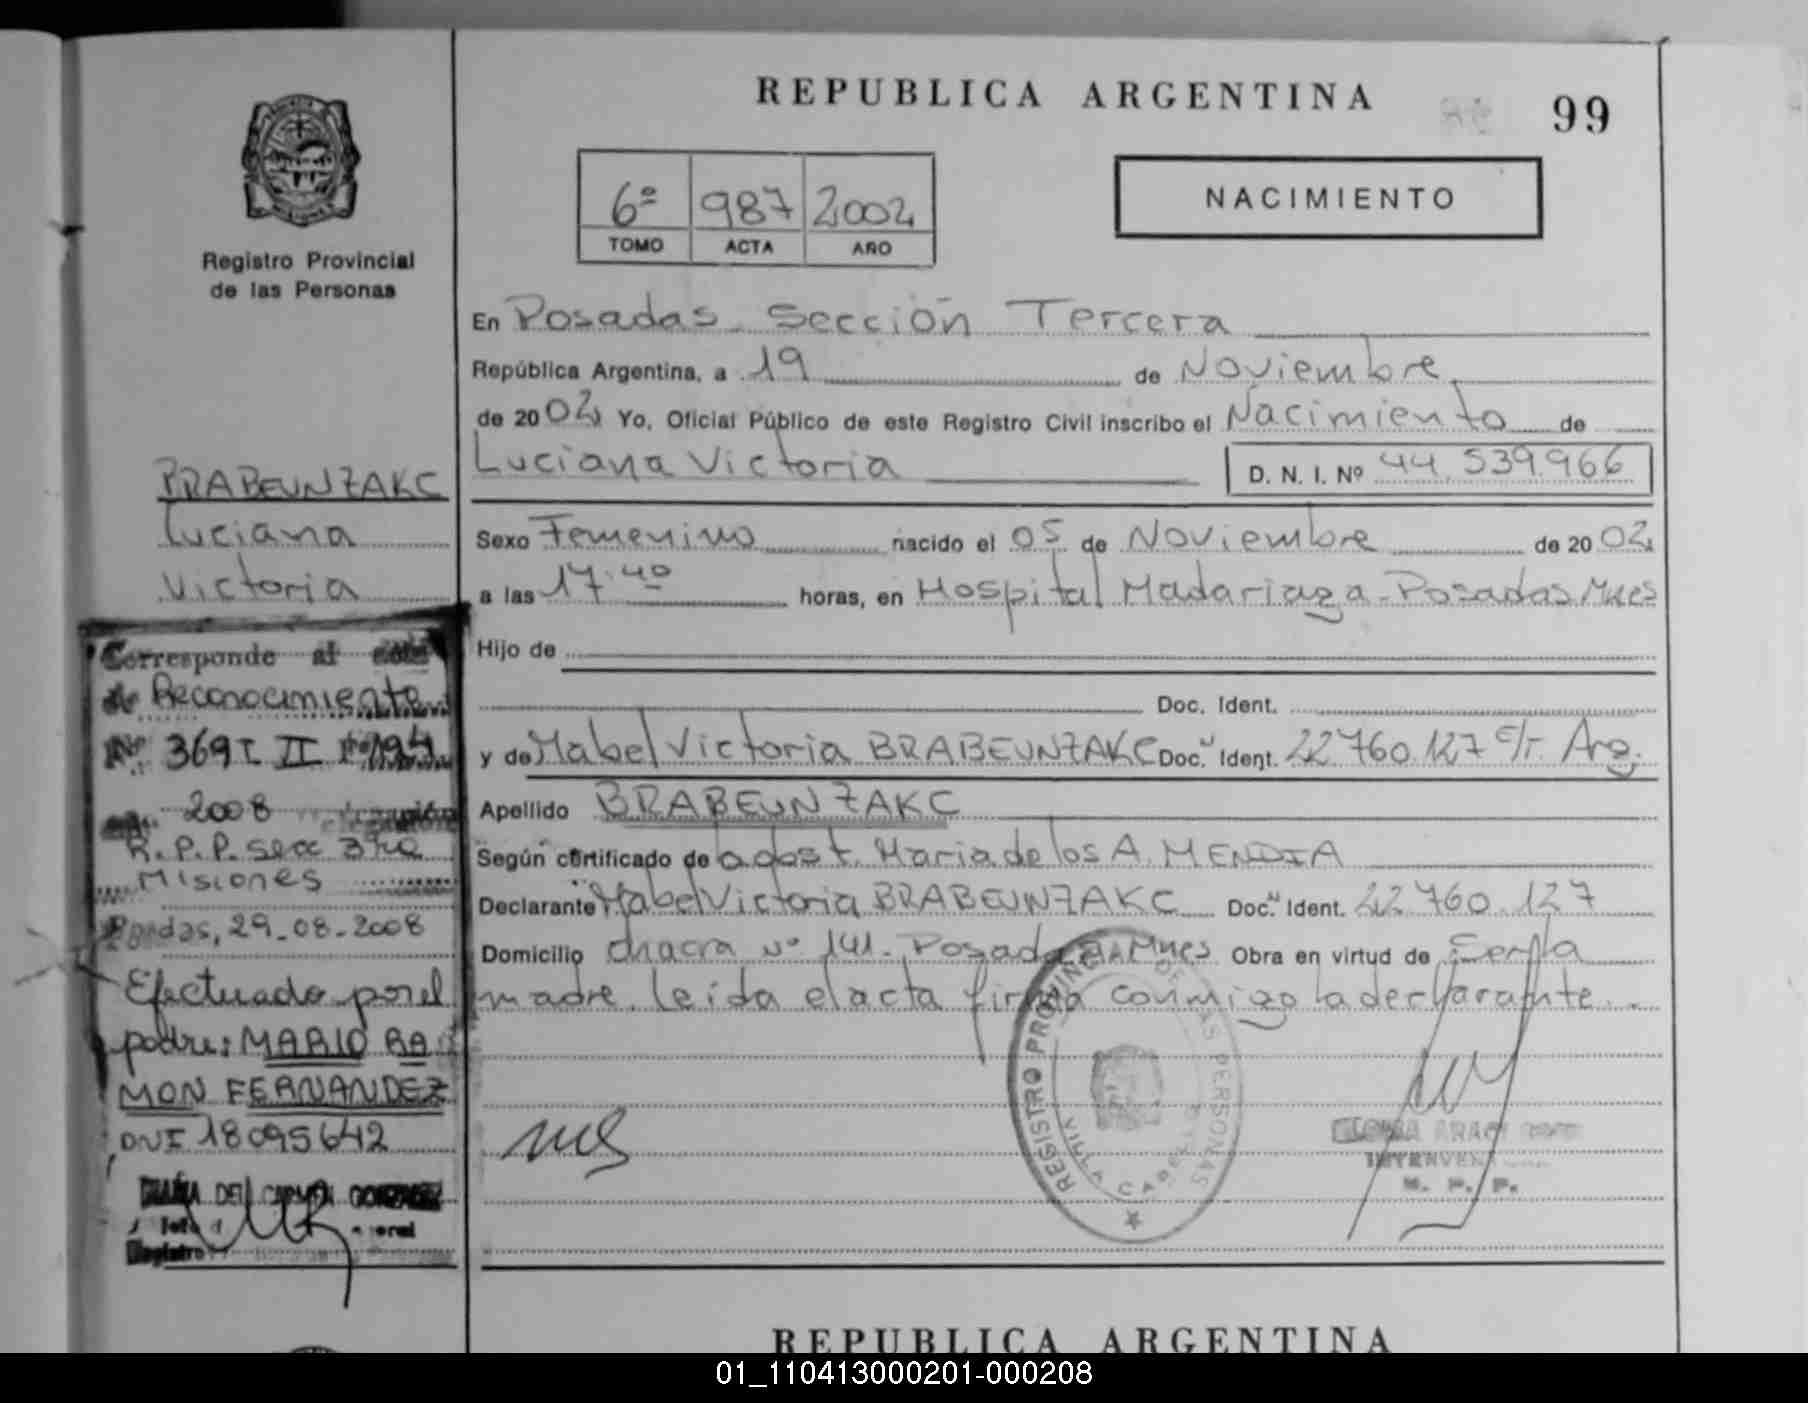 REPUBLICA ARGENTINA
99
6º 987 2002
TOMO ACTA AÑO
NACIMIENTO
Registro Provincial
de las Personas
En Posadas Sección Tercera
República Argentina, a 19 de Noviembre
de 2002 Yo, Oficial Público de este Registro Civil inscribo el Nacimiento de
Luciana Victoria D. N. I. Nº 44.539.966
Sexo Femenino nacido el 05 de Noviembre de 2002
a las 17:40 horas, en Hospital Madariaga - Posadas Mnes
Hijo de
Doc. Ident.
y de Mabel Victoria BRABEUNZAKC Doc. Ident. 22.760.127 Arg.
Apellido BRABEUNZAKC
Según certificado de obst. Maria de los A. MENDIA
Declarante Mabel Victoria BRABEUNZAKC Doc. Ident. 22.760.127
Domicilio chacra Nº 141 - Posadas Mnes Obra en virtud de Ser la
madre. leida el acta firma conmigo la declarante.
REGISTRO PROVINCIAL DE LAS PERSONAS
BRABEUNZAKC
Luciana
Victoria
Corresponde al
de Reconocimiento
Nº 369 T II Fº 194
2008
R.P.P. Secc 3ra
Misiones
Posadas, 29-08-2008
Efectuado por el
padre: MARIO RA
MON FERNANDEZ
DNI 18095642
DEL CARMEN
Registro
REPUBLICA ARGENTINA
01_110413000201-000208